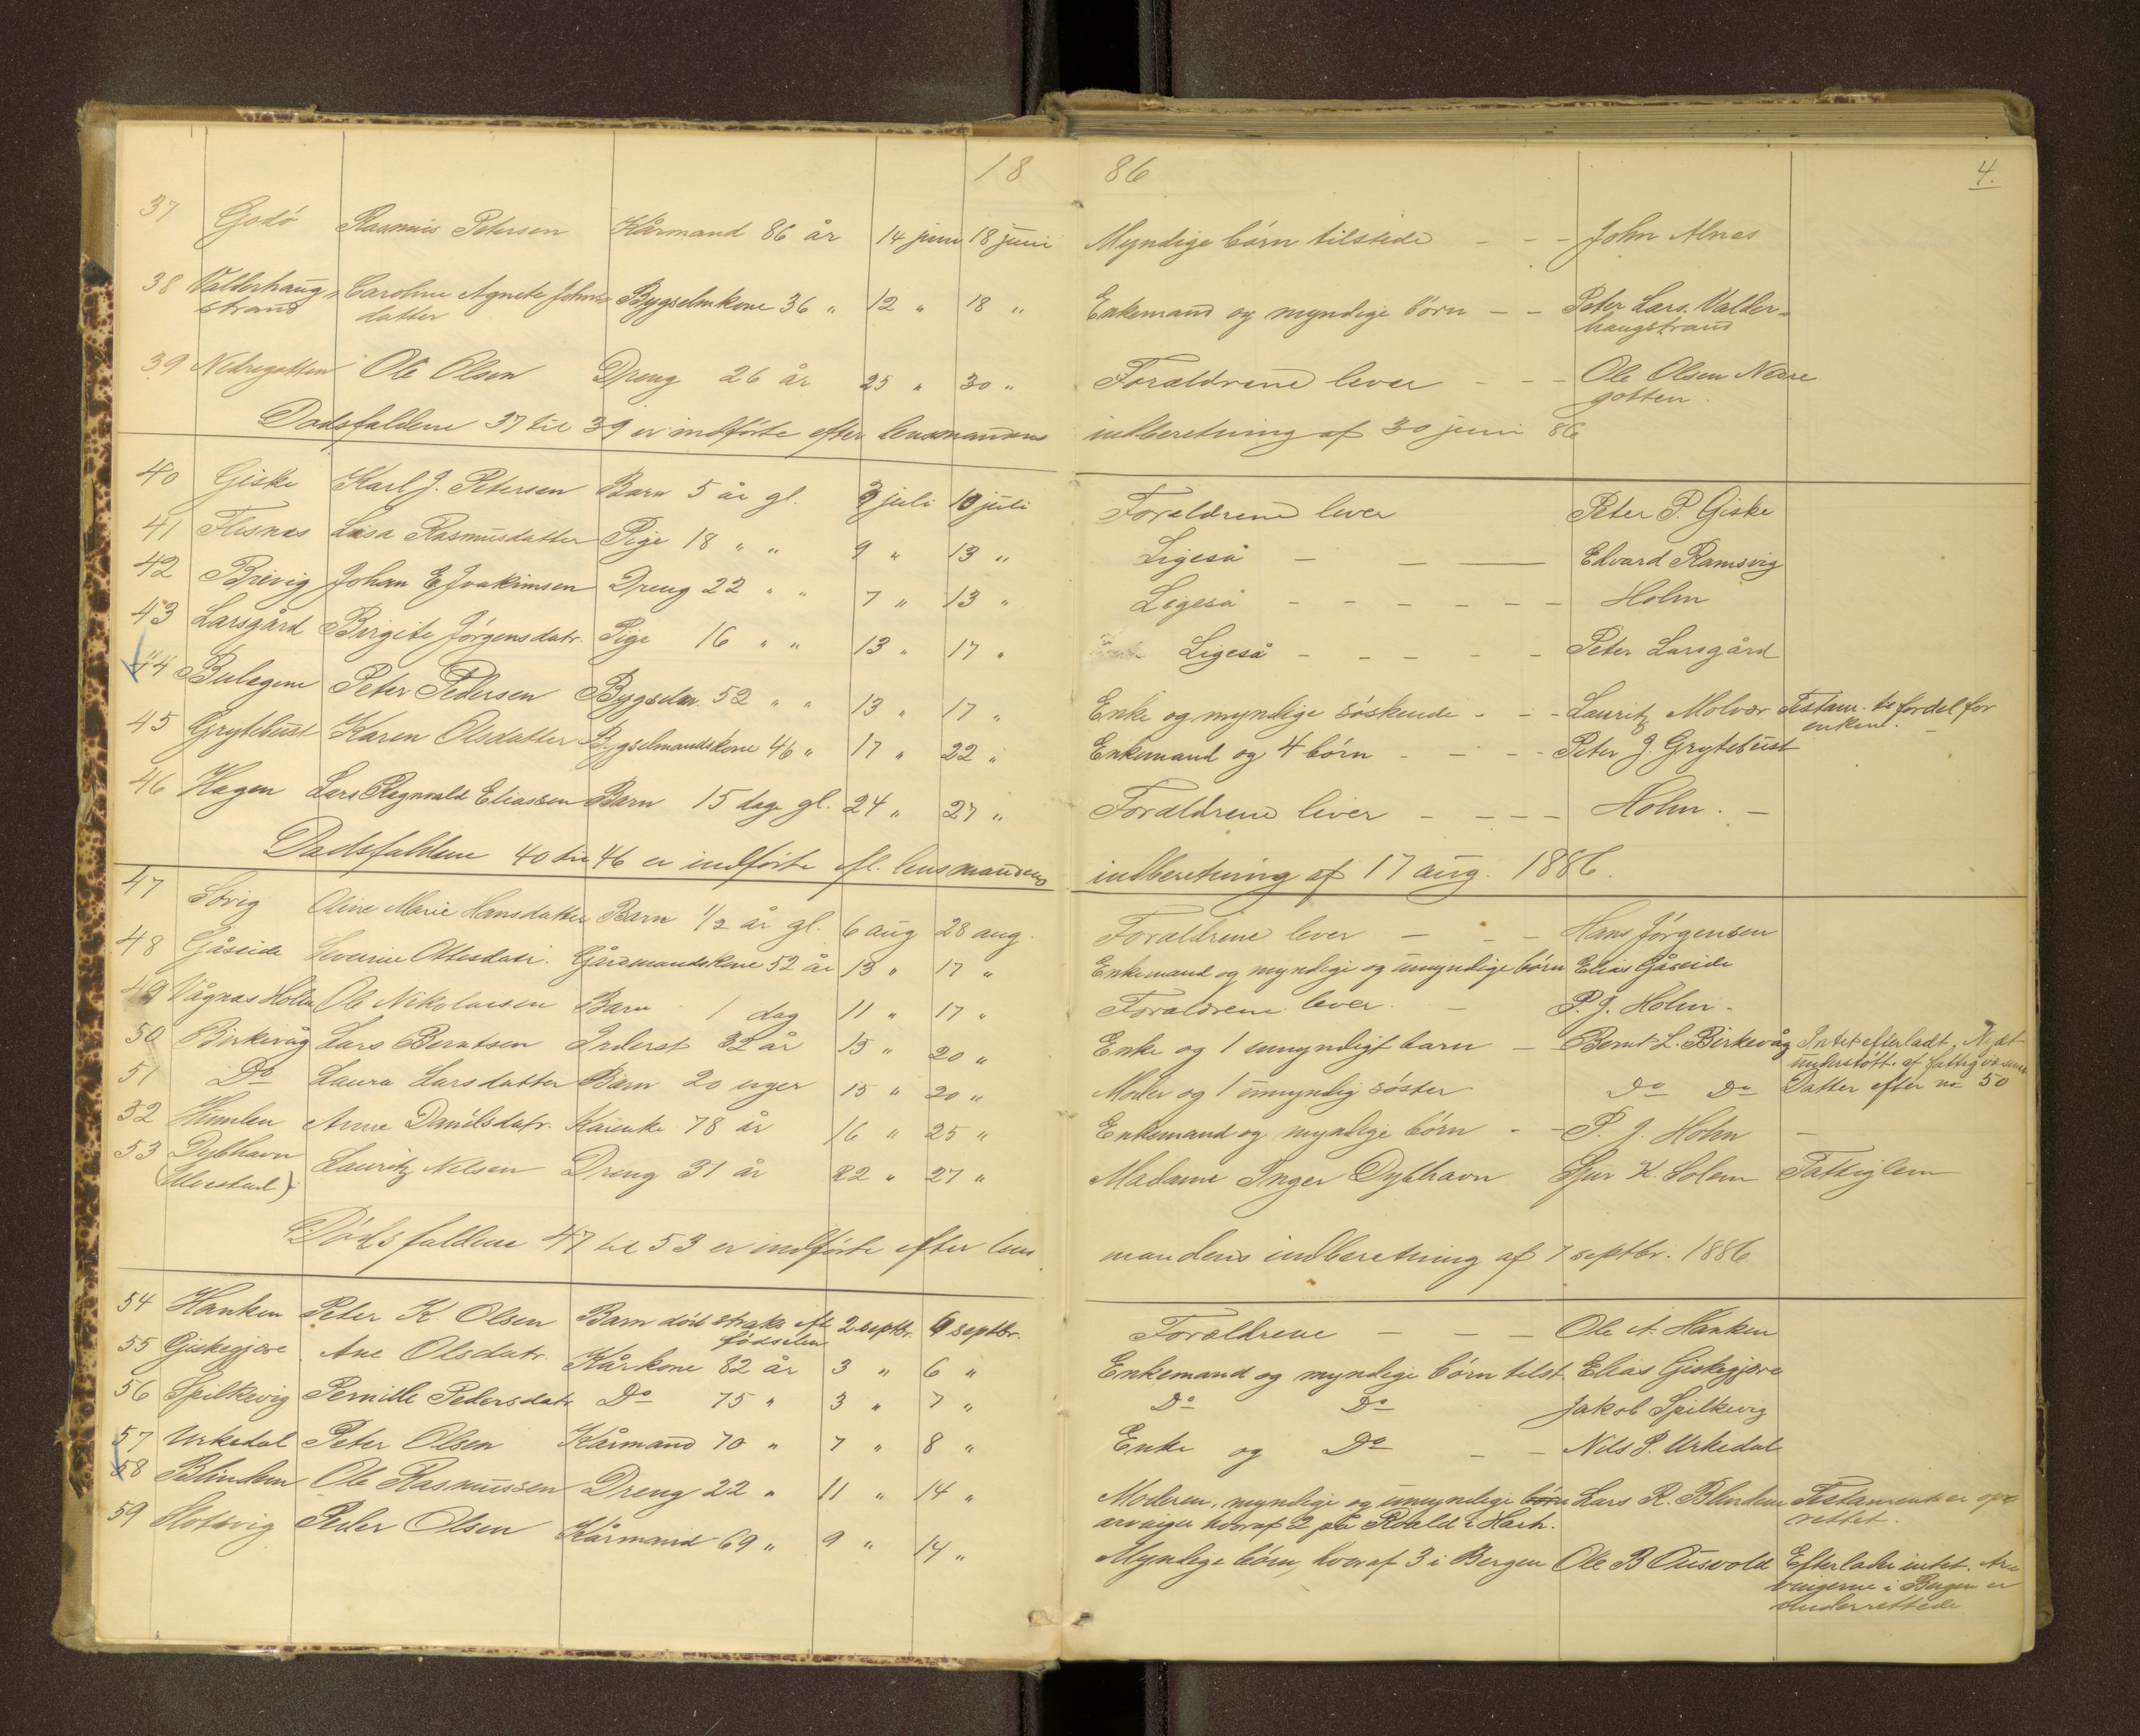 18 86 4.
37 Godö Rasmus Petersen Kårmand 86 år 14 juni 18 juni Myndige börn tilstede - - - John Alnes
38 Valderhaug- Caroline Agnete Johns- Bygselmkone 36 " 12 " 18 " Enkemand og myndige börn - - Peter Lars. Valder-
strand datter haugstrand
39 Nedregotten Ole Olsen Dreng 26 år 25 " 30 " Forældrene lever - - - Ole Olsen Nedre
gotten.
Dødsfaldene 37 til 39 er indförte efter lensmandens indberetning af 30 juni 86
40 Giske Karl J. Petersen Barn 5 år gl. 3 juli 10 juli Forældrene lever Peter P. Giske
41 Flisnes Lisa Rasmusdatter Pige 18 " " 9 " 13 " Ligeså - - - Edvard Ramsvig
42 Brevig Johan E Joakimsen Dreng 22 " " 7 " 13 " Ligeså - - - - - - Holm
43 Larsgård Birgite Jörgensdatr. Pige 16 " " 13 " 17 " Ligeså - - - - - Peter Larsgård
44 Peter Pedersen Bygselm. 52 " " 13 " 17 " Enke og myndige söskende - - - Lauritz Molvær Testam. ts fordel for
enken.
45 Grytebust Karen Olsdatter Bygselmandskone 46 " 17 " 22 " Enkemand og 4 börn - - - Peter J. Grytebust
46 Hagen Lars Ragnvald Eliassen Barn 15 dage gl. 24 " 27 " Forældrene lever - - - - Holm. -
Dødsfaldene 40 til 46 er indförte eft. lensmandens indberetning af 17 aug. 1886.
47 Sövig Oline Marie Hansdatter Barn 1/2 år gl. 6 aug 28 aug. Forældrene lever - - - Hans Jörgensen
48 Gåseide Severine Ottesdatr. Gårdmandskone 52 år 13 " 17 " Enkemand og myndige og umyndige börn Elias Gåseide
49 Vågnes Holm Ole Nikolaisen Barn 1 dag 11 " 17 " Forældrene lever. - P. J. Holm.
50 Birkevåg Lars Berntsen Inderst 32 år 15 " 20 " Enke og 1 umyndigt barn - Bernt L. Birkevåg Intet efterladt. Nydt
understött. af fattigvæsenet
51 Do Laura Larsdatter Barn 20 uger 15 " 20 " Moder og 1 umyndig söster Do Do Datter efter no 50
52 Humlen Anne Danielsdatr. Kårenke 78 år 16 " 25 " Enkemand og myndige börn - - P. J. Holm -
53 Dybhavn Lauritz Nilsen Dreng 31 år 22 " 27 " Madame Inger Dybhavn Sjur K. Solem Fattiglem
Dödsfaldene 47 til 53 er indförte efter lens mandens indberetning af 7 septbr. 1886
54 Hanken Peter K. Olsen Barn död straks eft. 2 septbr. 9 septbr. Forældrene - - - Ole A. Hanken
fødselen
55 Giskegjære Ane Olsdatr. Kårkone 82 år 3 " 6 " Enkemand og myndige börn tilst. Elias Giskegjære
56 Spilkevig Pernille Pedersdatr. Do 75 " 3 " 7 " Do Do Jakob Spilkevig
57 Urkedal Peter Olsen Kårmand 70 " 7 " 8 " Enke og Do - - Nils P. Urkedal
58 Blindem Ole Rasmussen Dreng 22 " 11 " 14 " Moderen, myndige og umyndige börn Lars R. Blindem Testament er op-
arvinger hvoraf 2 på Roald i Harh. rettet.
59 Slotsvig Peder Olsen Kårmand 69 " 9 " 14 " Myndige börn, hvoraf 3 i Bergen Ole B Ousvold Efterlader intet. Ar-
vingerne i Bergen er
underrettede